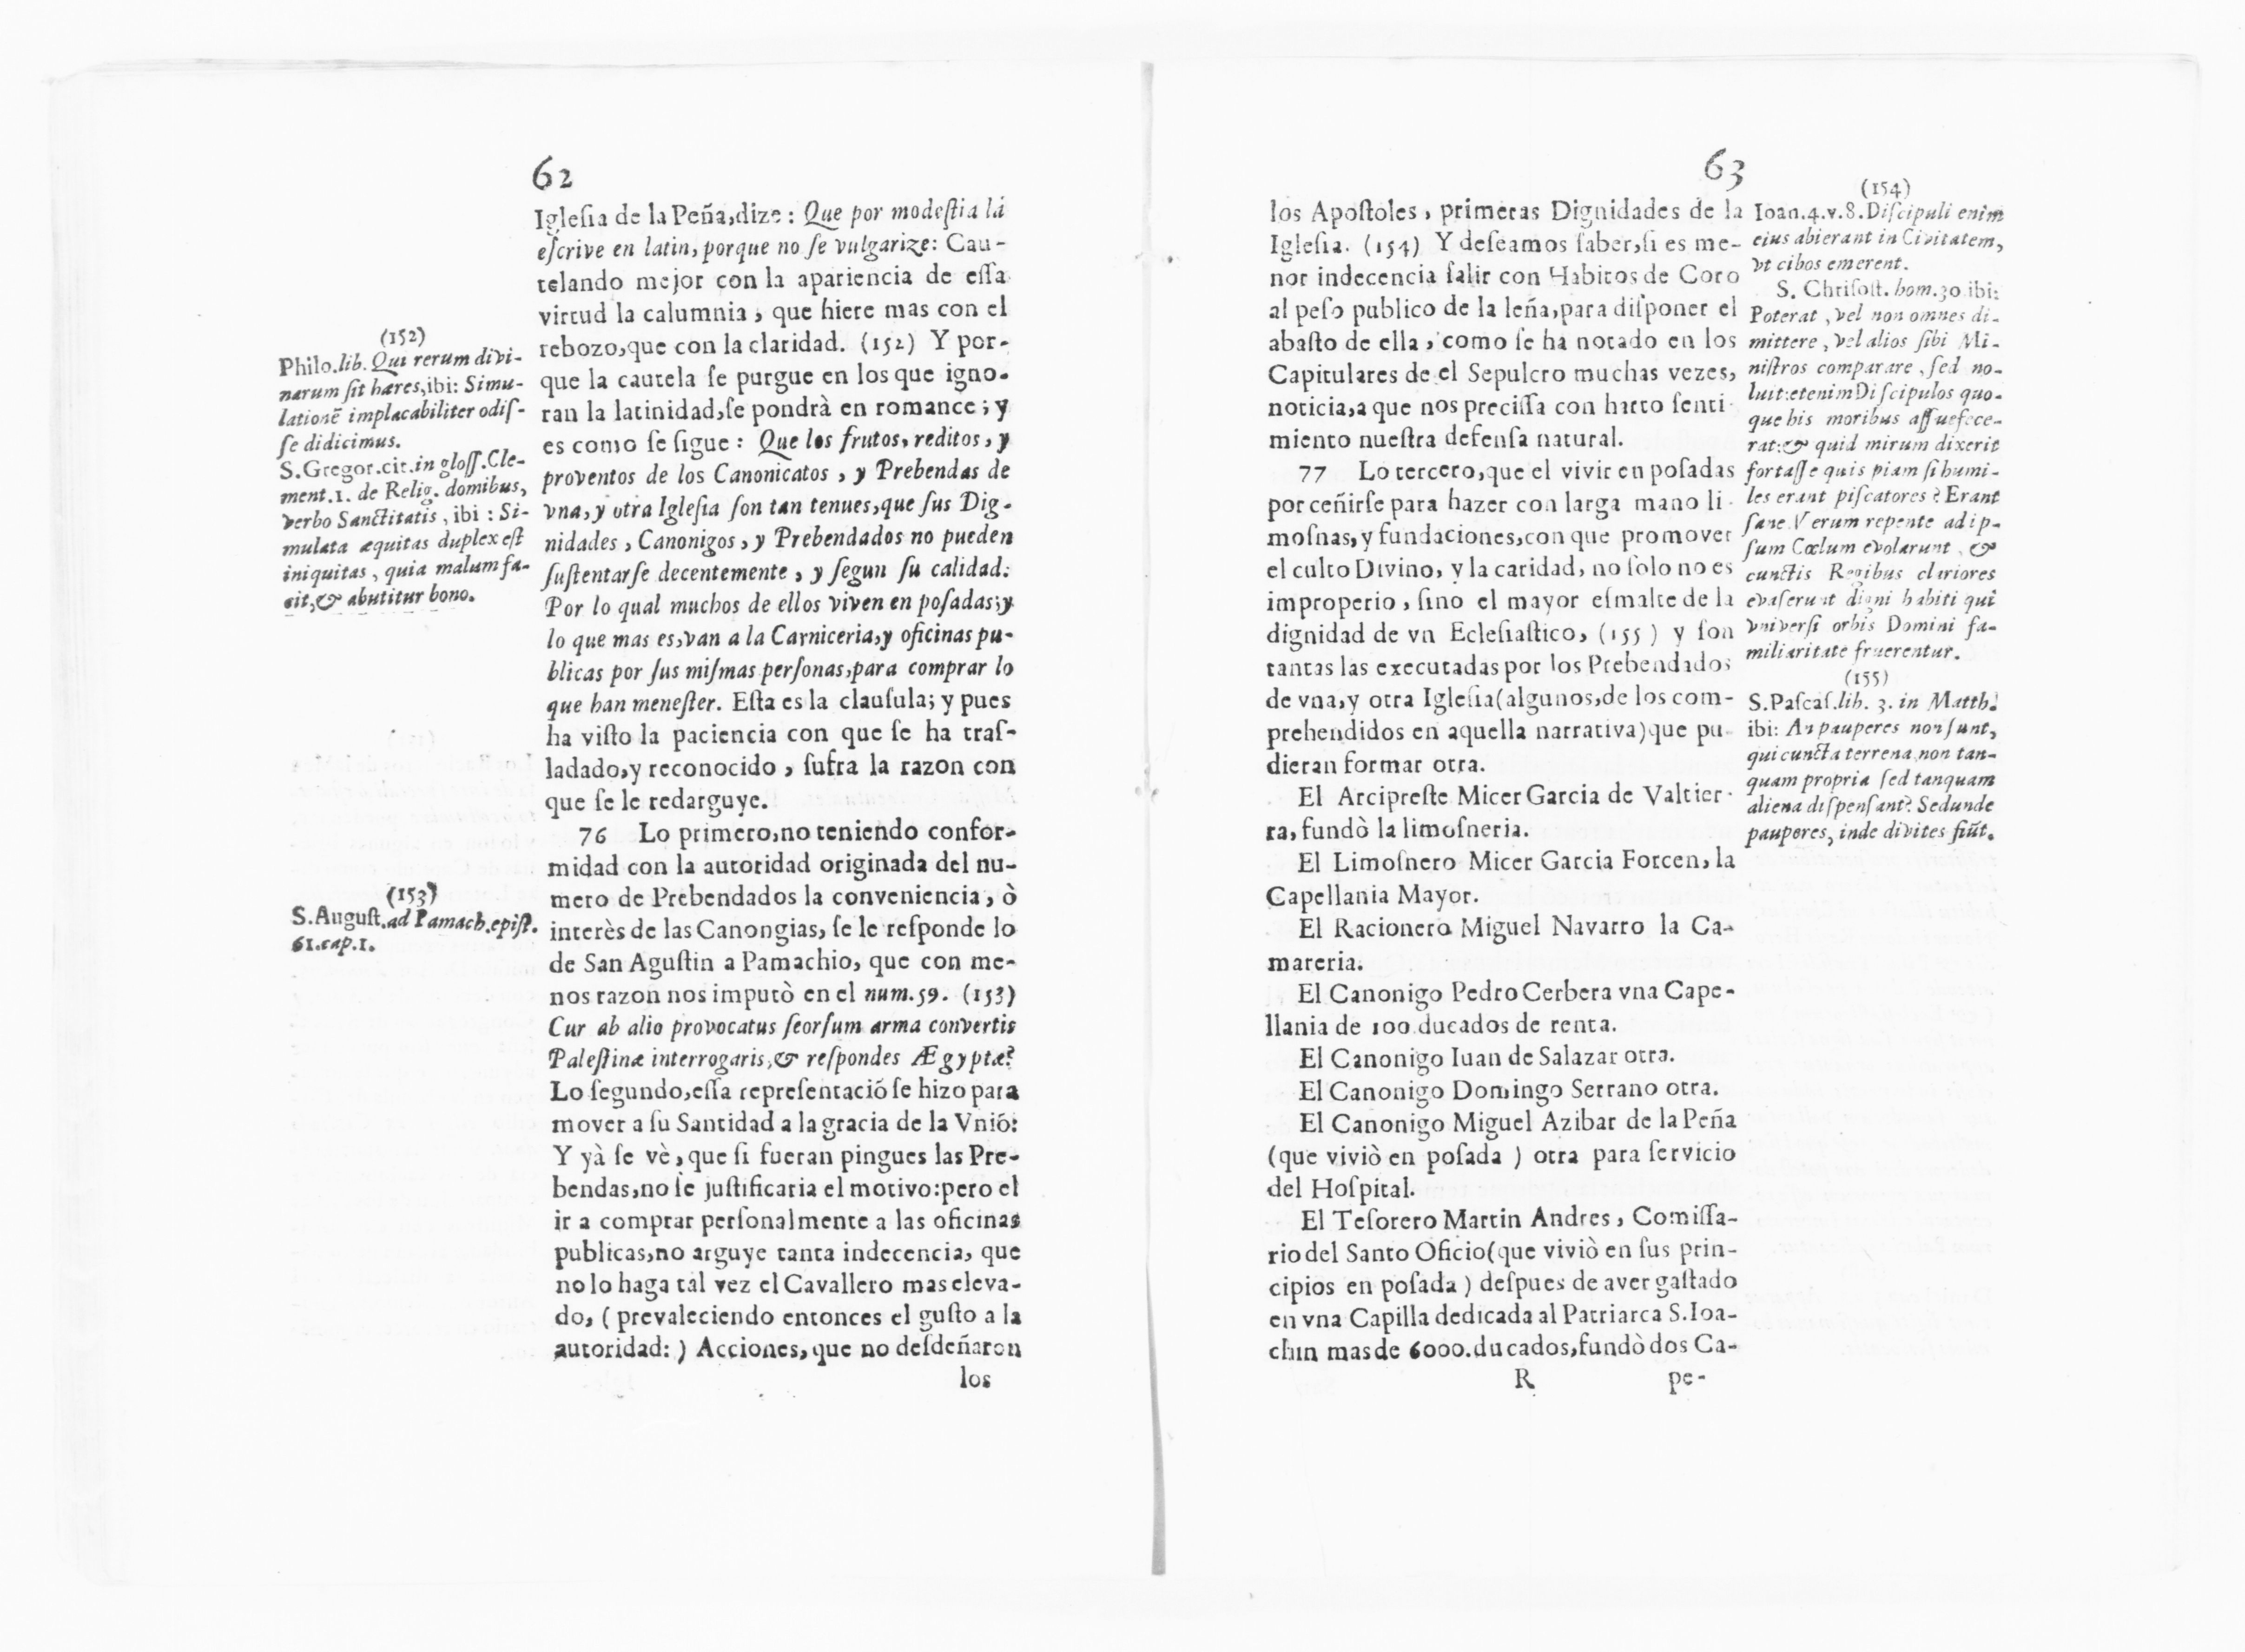 62
Iglesia de la Peña, dize: Que por modestia lá
escrive en latin, porque no se vulgarize: Cau-
telando mejor con la apariencia de essa
virtud la calumnia, que hiere mas con el
rebozo, que con la claridad. (152) Y por-
que la cautela se purgue en los que igno-
ran la latinidad, se pondrà en romance; y
es como se sigue: Que los frutos, reditos, y
proventos de los Canonicatos, y Prebendas de
vna, y otra Iglesia son tan tenues, que sus Dig-
nidades, Canonigos, y Prebendados no pueden
sustentarse decentemente, y segun su calidad:
Por lo qual muchos de ellos viven en posadas; y
lo que mas es, van a la Carniceria, y oficinas pu-
blicas por sus mismas personas, para comprar lo
que han menester. Esta es la clausula; y pues
ha visto la paciencia con que se ha tras-
ladado, y reconocido, sufra la razon con
que se le redarguye.
76 Lo primero, no teniendo confor-
midad con la autoridad originada del nu-
mero de Prebendados la conveniencia, ò
interès de las Canongias, se le responde lo
de San Agustin a Pamachio, que con me-
nos razon nos imputò en el num. 59. (153)
Cur ab alio provocatus seorsum arma convertis
Palestinæ interrogaris, & respondes Ægyptæ?
Lo segundo, essa representació se hizo para
mover a su Santidad a la gracia de la Vnió:
Y yà se vè, que si fueran pingues las Pre-
bendas, no se justificaria el motivo: pero el
ir a comprar personalmente a las oficinas
publicas, no arguye tanta indecencia, que
no lo haga tal vez el Cavallero mas eleva-
do, (prevaleciendo entonces el gusto a la
autoridad:) Acciones, que no desdeñaron
los
(152)
Philo. lib. Qui rerum divi-
narum sit hæres, ibi: Simu-
lationē implacabiliter odis-
se didicimus.
S. Gregor. cit. in gloss. Cle-
ment. 1. de Relig. domibus,
verbo Sanctitatis, ibi: Si-
mulata æquitas duplex est
iniquitas, quia malum fa-
cit, & abutitur bono.
(153)
S. August. ad Pamach. epist.
61. cap. 1.
63
los Apostoles, primeras Dignidades de la
Iglesia. (154) Y deseamos saber, si es me-
nor indecencia salir con Habitos de Coro
al peso publico de la leña, para disponer el
abasto de ella, como se ha notado en los
Capitulares de el Sepulcro muchas vezes,
noticia, a que nos precissa con harto senti-
miento nuestra defensa natural.
77 Lo tercero, que el vivir en posadas
por ceñirse para hazer con larga mano li-
mosnas, y fundaciones, con que promover
el culto Divino, y la caridad, no solo no es
improperio, sino el mayor esmalte de la
dignidad de vn Eclesiastico, (155) y son
tantas las executadas por los Prebendados
de vna, y otra Iglesia (algunos, de los com-
prehendidos en aquella narrativa) que pu-
dieran formar otra.
El Arcipreste Micer Garcia de Valtier-
ra, fundò la limosneria.
El Limosnero Micer Garcia Forcen, la
Capellania Mayor.
El Racionero Miguel Navarro la Ca-
mareria.
El Canonigo Pedro Cerbera vna Cape-
llania de 100. ducados de renta.
El Canonigo Iuan de Salazar otra.
El Canonigo Domingo Serrano otra.
El Canonigo Miguel Azibar de la Peña
(que viviò en posada) otra para servicio
del Hospital.
El Tesorero Martin Andres, Comissa-
rio del Santo Oficio (que viviò en sus prin-
cipios en posada) despues de aver gastado
en vna Capilla dedicada al Patriarca S. Ioa-
chin mas de 6000. ducados, fundò dos Ca-
R pe-
(154)
Ioan. 4. v. 8. Discipuli enim
eius abierant in Civitatem,
vt cibos emerent.
S. Chrisost. hom. 30 ibi:
Poterat, vel non omnes di-
mittere, vel alios sibi Mi-
nistros comparare, sed no-
luit: etenim Discipulos quo-
que his moribus assuefece-
rat: & quid mirum dixerit
fortasse quis piam si humi-
les erant piscatores? Erant
sane. Verum repente ad ip-
sum Cœlum evolarunt, &
cunctis Regibus clariores
evaserunt digni habiti qui
vniversi orbis Domini fa-
miliaritate fruerentur.
(155)
S. Pascas. lib. 3. in Matth.
ibi: An pauperes non sunt,
qui cuncta terrena, non tan-
quam propria sed tanquam
aliena dispensant? Sed unde
pauperes, inde divites fiūt.